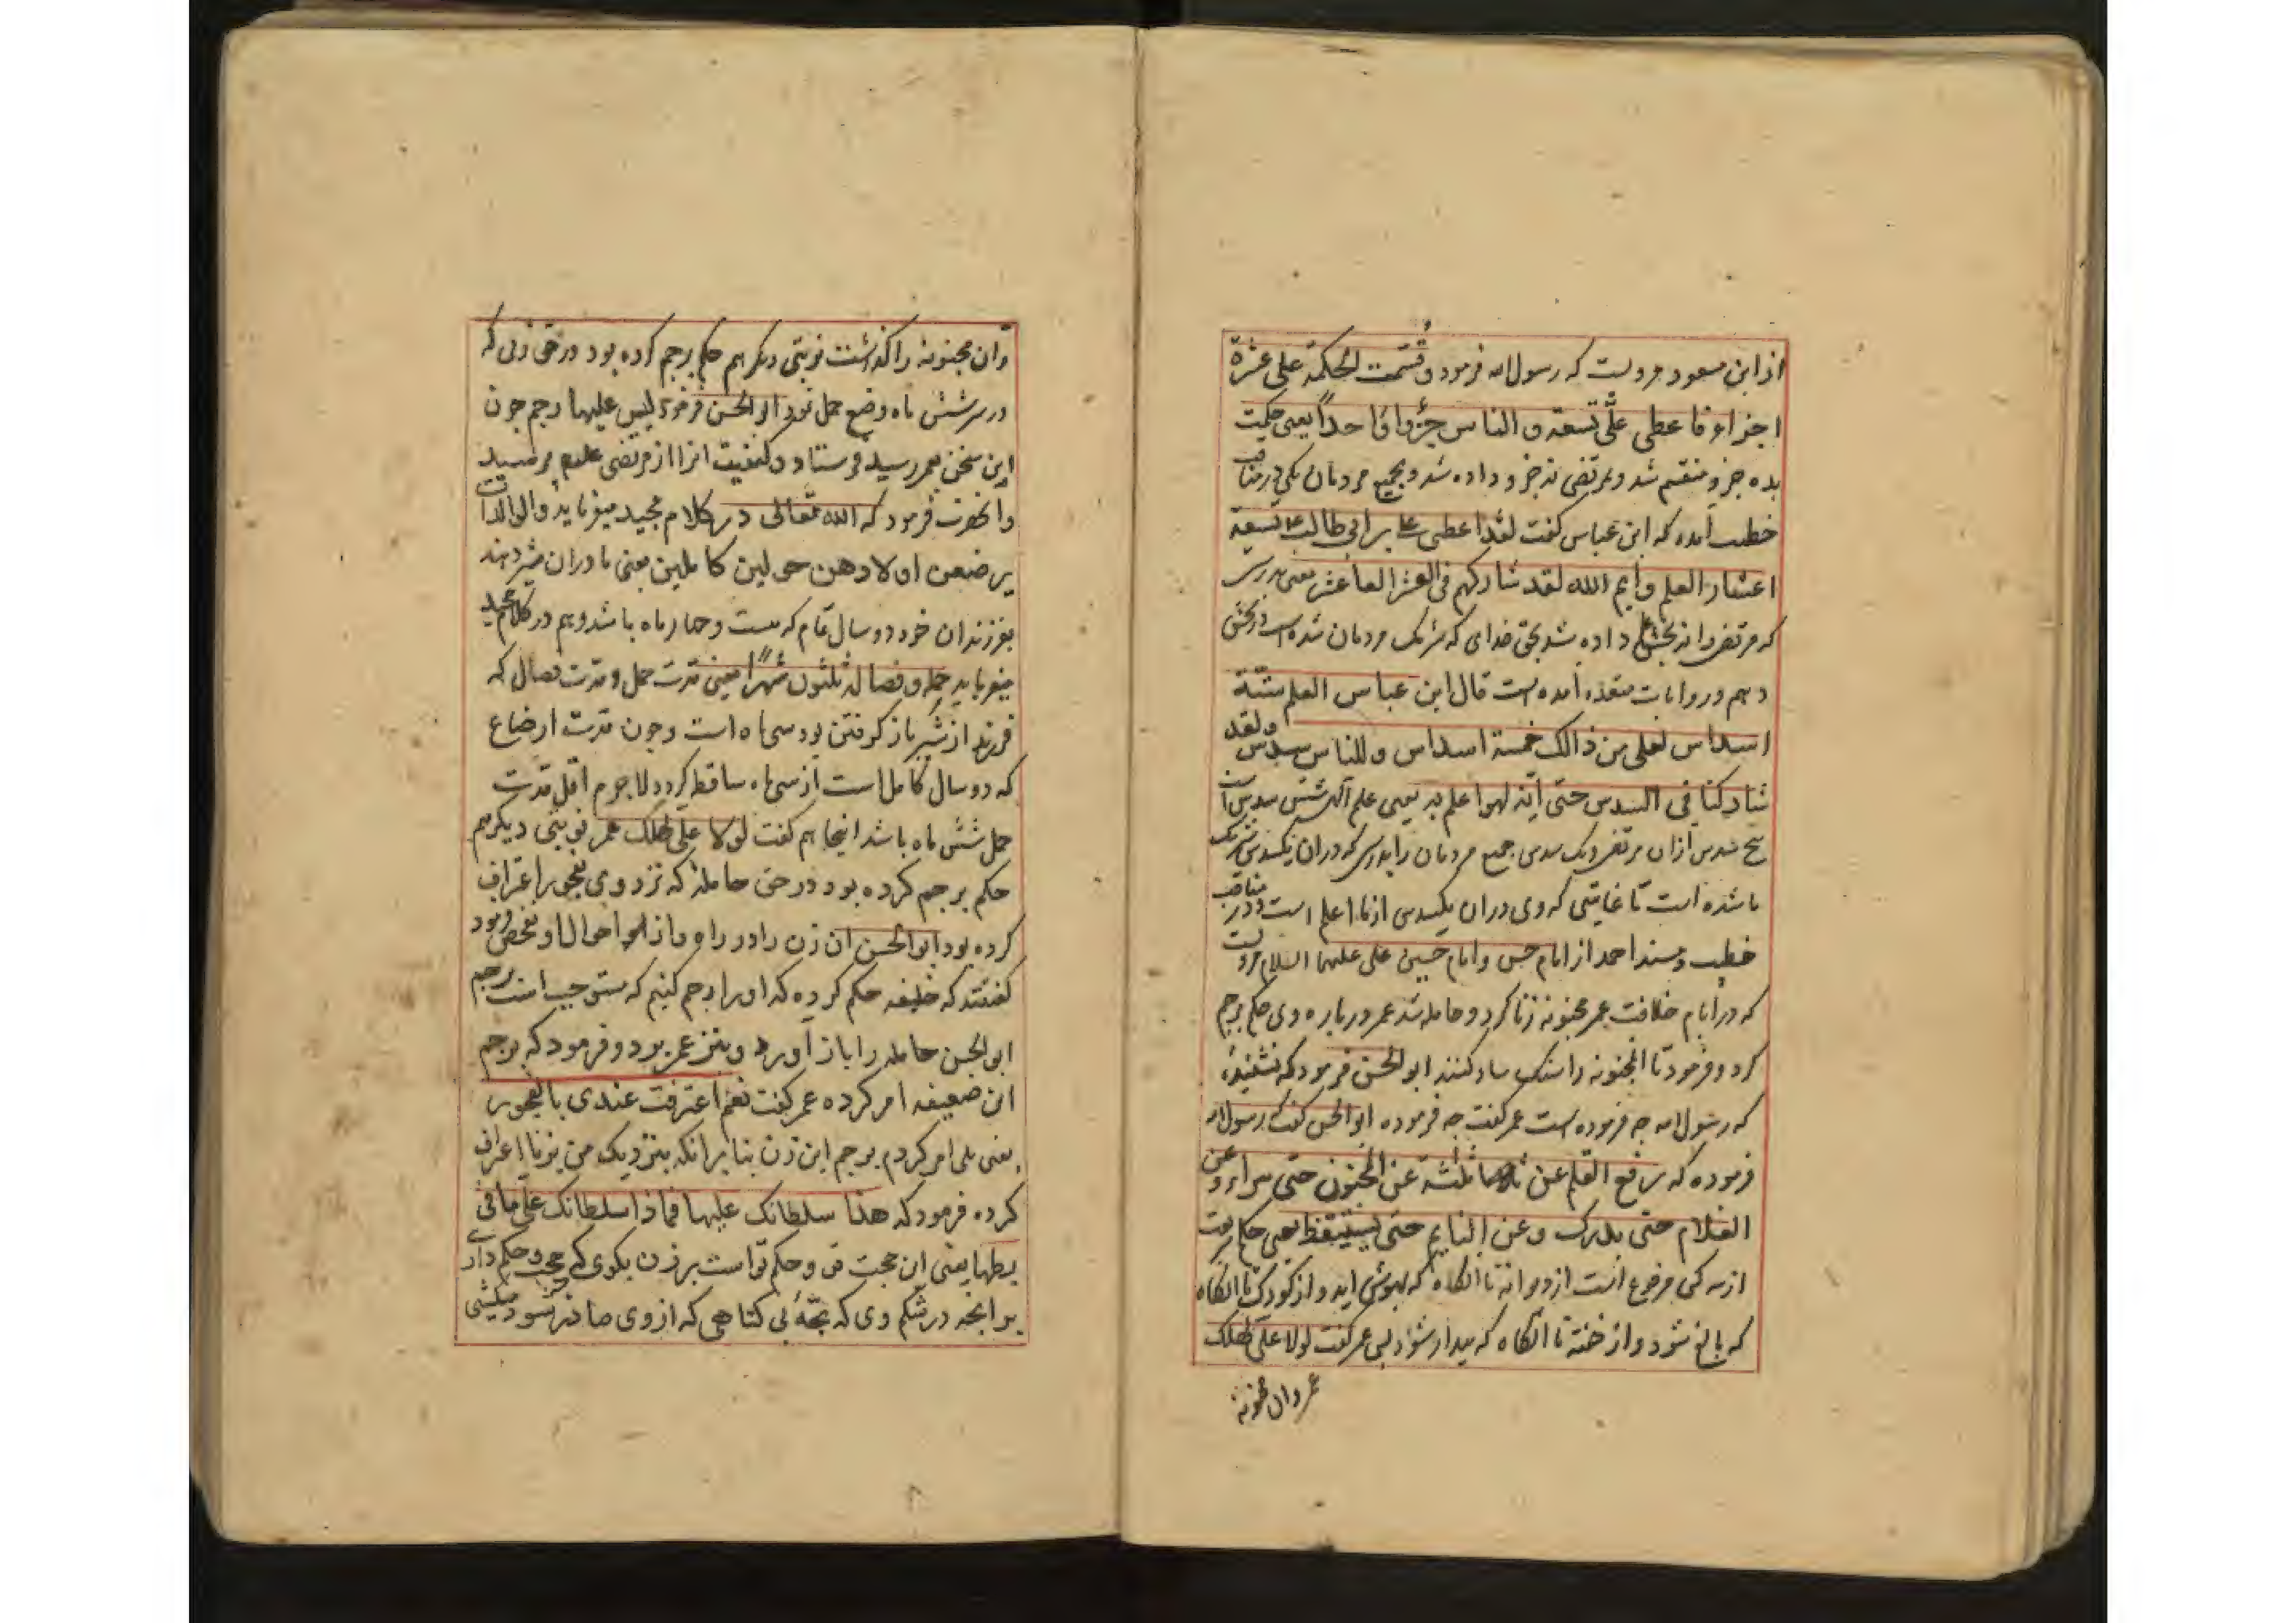 از ابن مسعود مرویست که رسول الله فرمود و قُسّمت الحکمة علی عشرة
اجزاء فاعطی علیّ تسعة و الناس جزُواً واحداً یعنی حکمت
بده جزو منقسم شد و بمرتضی نه جزو داده شد و بجمیع مردمان یکی و در مناقب
خطب آمده که ابن عباس گفت لقد اعطی علی بن ابی طالب ع تسعة
اعشار العلم و ایم الله لقد شارکهم فی العشر العاشر یعنی بدرستی
که مرتضی را نه بخش علم داده شد بحق خدای که شریک مردمان شده است در بخش
دهم و در روایات متعدده آمده است قال ابن عباس العلم ستّة
اسداس لعلی من ذالک خمسة اسداس و للناس سدس و لقد
شارکنا فی السدس حتی انه لهو اعلم به یعنی علم شش سدس است
پنج سدس ازان مرتضی و یک سدس جمیع مردمان را بدرستی که دران یکسدس شریک
ما شده است تا غایتی که وی دران یکسدس از ما اعلم است و در مناقب
خطب و مسند احمد از امام حسن و امام حسین علی علیهما السلام مرویست
که در ایام خلافت عمر مجنونه زنا کرد و حامله شد عمر در باره وی حکم برجم
کرد و فرمود تا المجنونه را سنگسار کنند ابو الحسن فرمود که نشنیدهٔ
که رسول الله چه فرموده است عمر گفت چه فرموده ابو الحسن گفت رسول الله
فرموده که رفع القلم عن ثلثة عن المجنون حتی یبراء و عن
الغلام حتی یدرک و عن النایم حتی یستیقظ یعنی حکم
از سه کس مرفوع است از دیوانه تا آنگاه که بهوش اید و از کودک تا آنگاه
که بالغ شود و از خفته تا آنگاه که بیدار شود پس عمر گفت لولا علیّ لهلک
عمر و ان مجنونه
وان مجنونه را گذاشت نوبتی دیگر هم حکم برجم کرده بود در حق زنی که
در سر شش ماه وضع حمل نمود ابو الحسن فرمود لیس علیها رجم چون
این سخن بعمر رسید فرستاد و کیفیت انرا از مرتضی علیم پرسید
وانحضرت فرمود که الله تعالی در کلام مجید میفرماید والوالدات
یرضعن اولادهن حولین کاملین یعنی مادران شیر دهند
بفرزندان خود دو سال تمام که بیست و چهار ماه باشد و هم در کلام مجید
میفرماید حمله و فصاله ثلثون شهرا یعنی مدت حمل و مدت فصال که
فرزند از شیر باز گرفتن بود سی ماه است و چون مدت ارضاع
که دو سال کامل است از سی ماه ساقط گردد لاجرم اقل مدت
حمل شش ماه باشد اینجا هم گفت لولا علی لهلک عمر نوبتی دیگر هم
حکم برجم کرده بود در حق حاملهٔ که نزد وی بفجور اعتراف
کرده بود ابو الحسن ان زن را در راه احوال او تفحص فرمود
گفتند که خلیفه حکم کرده که او را رجم کنیم که مستوجب است برجم
ابو الحسن حامله را باز آورد و بنزد عمر بود و فرمود که برجم
این ضعیفه امر کرده عمر گفت نعم اعترفت عندی بالفجور
یعنی بلی امر کردم برجم این زن بنا برانکه بنزدیک من بزنا اعراف
کرده فرمود که هذا سلطانک علیها فماذا سلطانک علی ما فی
بطنها یعنی این حجت و حکم تو است بر زن بگوی که چه حجت و حکم داری
بر انچه در شکم وی که بچهٔ بی گناهی که از وی صادر نشود میکشی